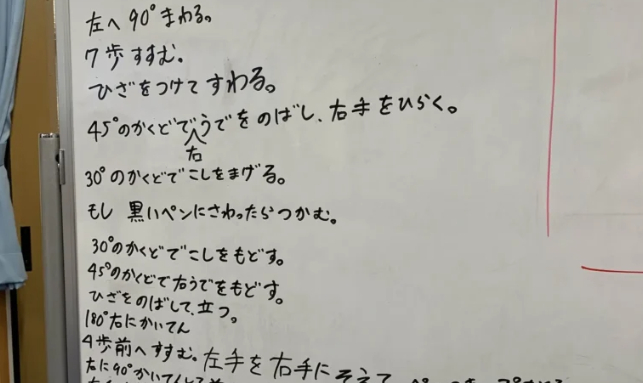 左へ90°まわる。
7歩すすむ。
ひざをつけてすわる。
45°のかくどで右うでをのばし、右手をひらく。
30°のかくどでこしをまげる。
もし 黒いペンにさわったらつかむ。
30°のかくどでこしをもどす。
45°のかくどで右うでをもどす。
ひざをのばして、立つ。
180°右にかいてん
4歩前へすすむ。左手を右手にそえて
右に90°かいてん